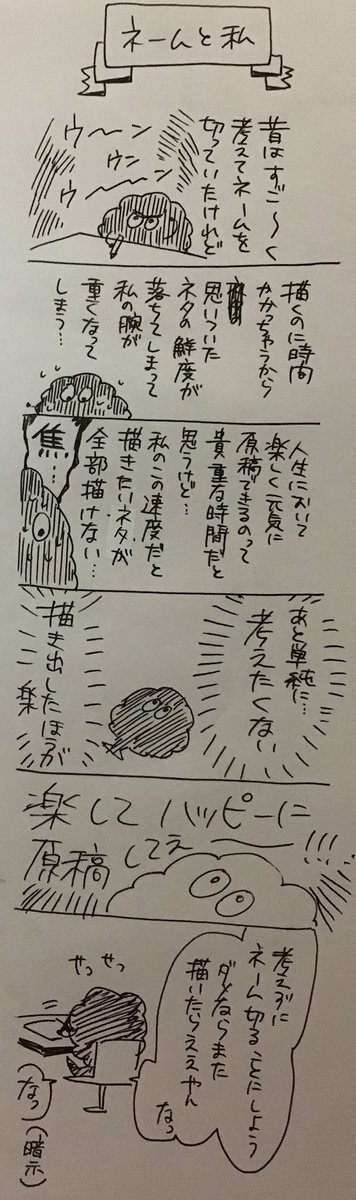 ネームと私
昔はすご〜く
考えてネームを
切っていたけれど
ウ〜〜ン
ウン
ウ〜〜〜ン
描くのに時間
かかっちゃうから
思いついた
ネタの鮮度が
落ちてしまって
私の腕が
重くなって
しまう…
人生において
楽しく元気に
原稿できるのって
貴重な時間だと
思うけど…
私のこの速度だと
描きたいネタが
全部描けない…
焦…
あと単純に…
考えたくない
描き出したほうが
楽
楽してハッピーに
原稿してえ──!!!
考えずに
ネーム切ることにしよう
ダメならまた
描いたらええやん
なっ
せっせっ
なっ
(暗示)